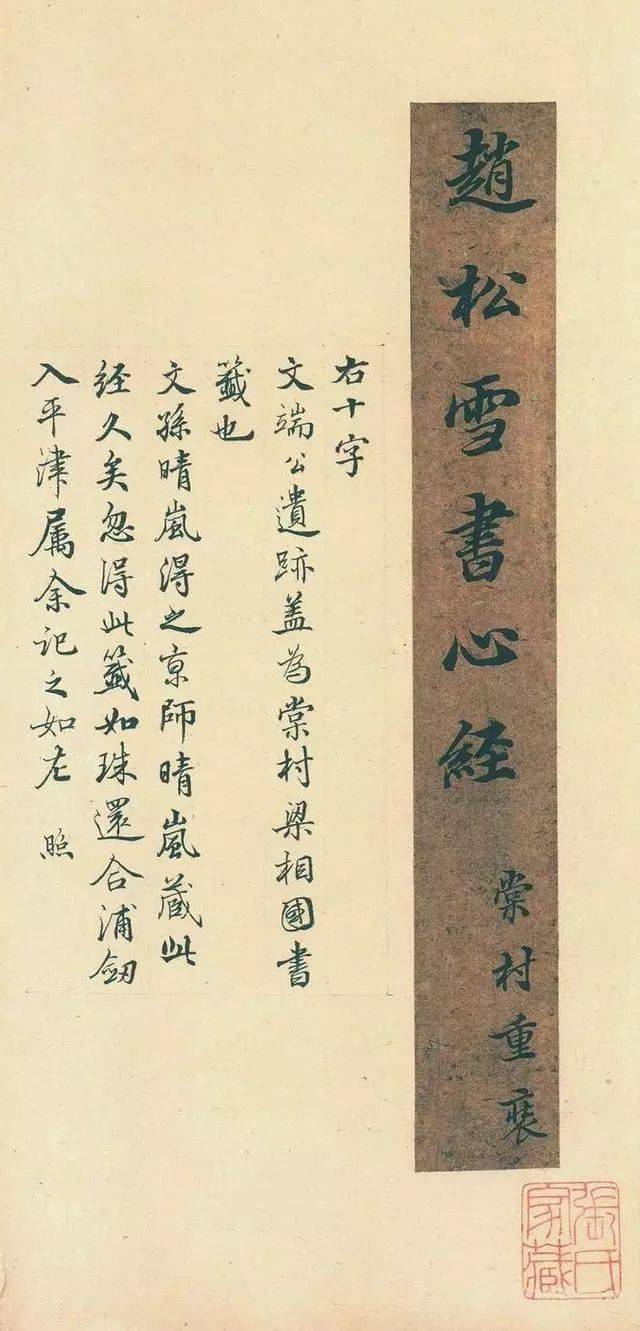 趙松雪書心經
棠村重裝
右十字
文端公遺跡蓋為棠村梁相國書
籤也
文孫晴嵐得之京師晴嵐藏此
経久矣忽得此籤如珠還合浦劔
入平津属余記之如左 照
張氏家藏